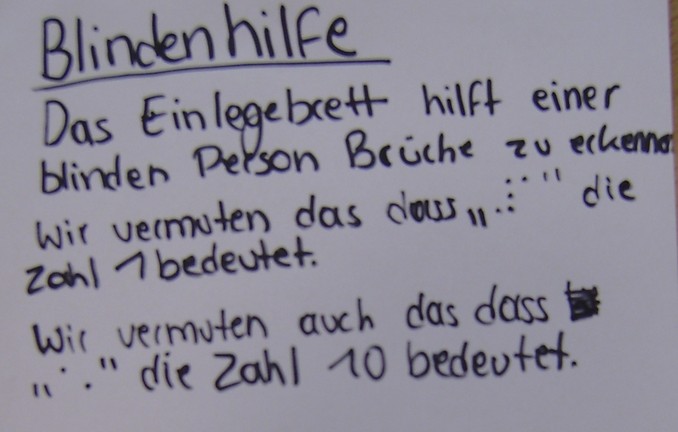 Blindenhilfe
Das Einlegebrett hilft einer
blinden Person Brüche zu erkennen
Wir vermuten das dass „.:˙" die
Zahl 1 bedeutet.
Wir vermuten auch das dass
„˙." die Zahl 10 bedeutet.